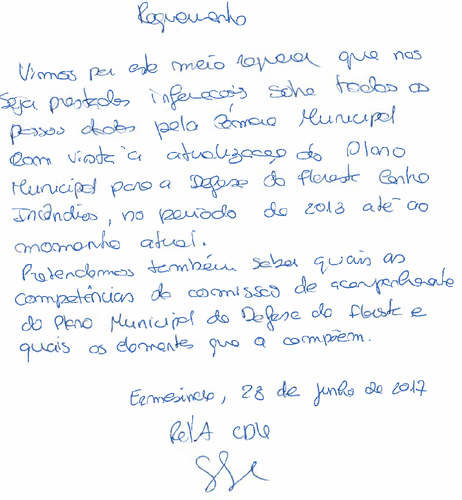 Requerimento
Vimos por este meio requerer que nos
seja prestadas informações sobre todos os
passos dados pela Câmara Municipal
com vista à atualização do Plano
Municipal para a Defesa da Floresta Contra
Incêndios, no período de 2013 até ao
momento atual.
Pretendemos também saber quais as
competências da comissão de acompanhamento
do Plano Municipal de Defesa da Floresta e
quais os elementos que a compõem.
Ermesinde, 28 de junho de 2017
Pel'A CDU